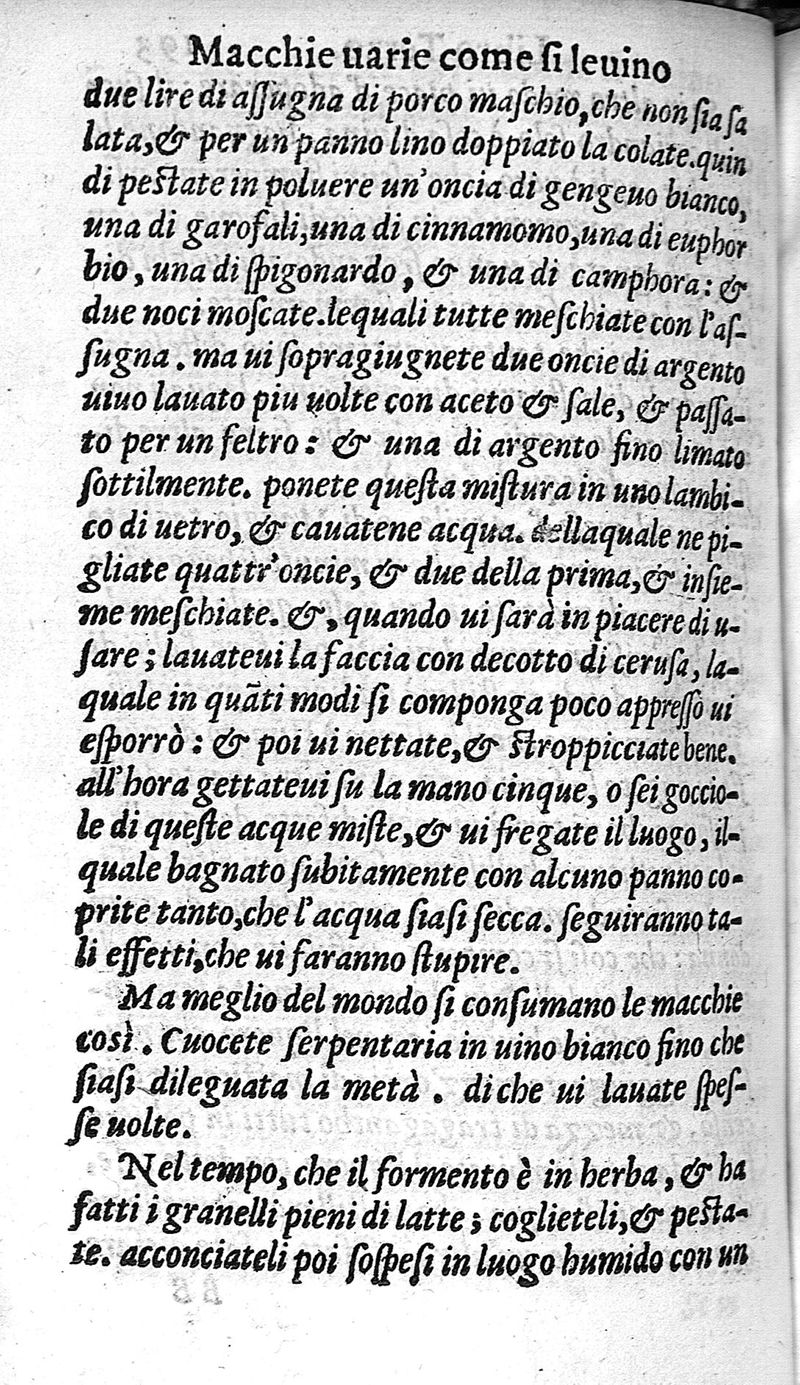 Macchie uarie come ſi leuino
due lire di aſſugna di porco maſchio, che non ſia ſa
lata, & per un panno lino doppiato la colate. quin
di peſtate in poluere un'oncia di gengeuo bianco,
una di garofali, una di cinnamomo, una di euphor
bio, una di ſpigonardo, & una di camphora: &
due noci moſcate. lequali tutte meſchiate con l'aſ-
ſugna. ma ui ſopragiugnete due oncie di argento
uiuo lauato piu uolte con aceto & ſale, & paſſa-
to per un feltro: & una di argento fino limato
ſottilmente. ponete queſta miſtura in uno lambi-
co di uetro, & cauatene acqua. dellaquale ne pi-
gliate quattr'oncie, & due della prima, & inſie-
me meſchiate. &, quando ui ſarà in piacere di u-
ſare; lauateui la faccia con decotto di ceruſa, la-
quale in quãti modi ſi componga poco appreſſo ui
eſporrò: & poi ui nettate, & ſtroppicciate bene.
all'hora gettateui ſu la mano cinque, o ſei goccio-
le di queſte acque miſte, & ui fregate il luogo, il-
quale bagnato ſubitamente con alcuno panno co-
prite tanto, che l'acqua ſiaſi ſecca. ſeguiranno ta-
li effetti, che ui faranno ſtupire.
Ma meglio del mondo ſi conſumano le macchie
così. Cuocete ſerpentaria in uino bianco fino che
ſiaſi dileguata la metà. di che ui lauate ſpeſ-
ſe uolte.
Nel tempo, che il formento è in herba, & ha
fatti i granelli pieni di latte; coglieteli, & peſta-
te. acconciateli poi ſoſpeſi in luogo humido con un